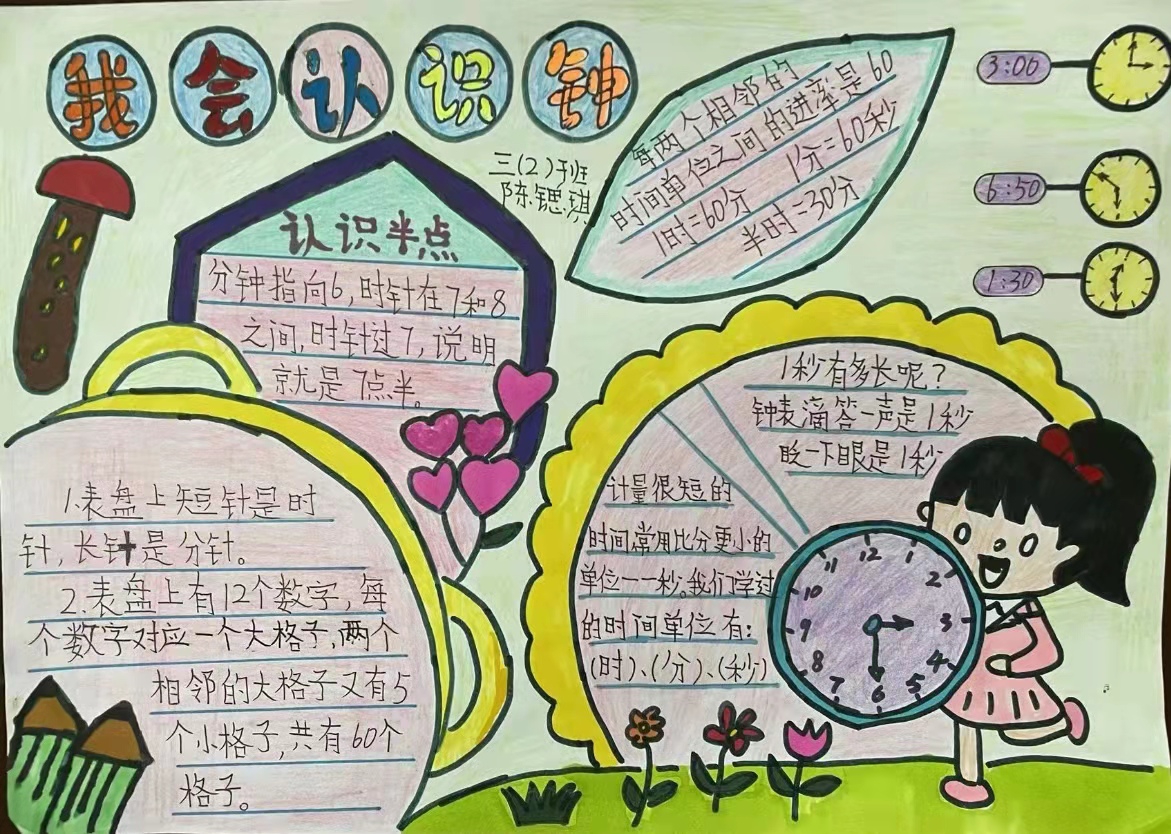 我会认识钟
三(2)班
陈锶琪
每两个相邻的
时间单位之间的进率是60
1时=60分 1分=60秒
半时=30分
3:00
6:50
1:30
认识半点
分钟指向6,时针在7和8
之间,时针过7,说明
就是7点半。
1.表盘上短针是时
针,长针是分针。
2.表盘上有12个数字,每
个数字对应一个大格子,两个
相邻的大格子又有5
个小格子,共有60个
格子。
1秒有多长呢?
钟表滴答一声是1秒
眨一下眼是1秒
计量很短的
时间常用比分更小的
单位一一秒。我们学过
的时间单位有:
(时)、(分)、(秒)
12
1
2
3
4
5
6
7
8
9
10
11